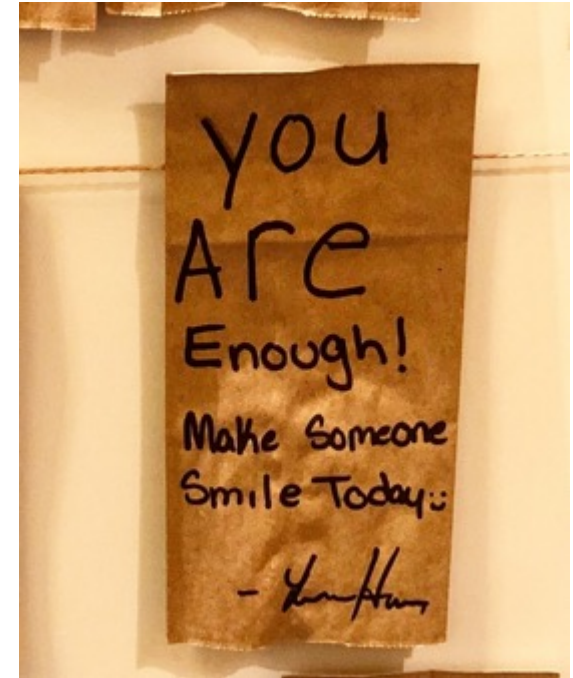 you
Are
Enough!
Make Someone
Smile Today:)
-